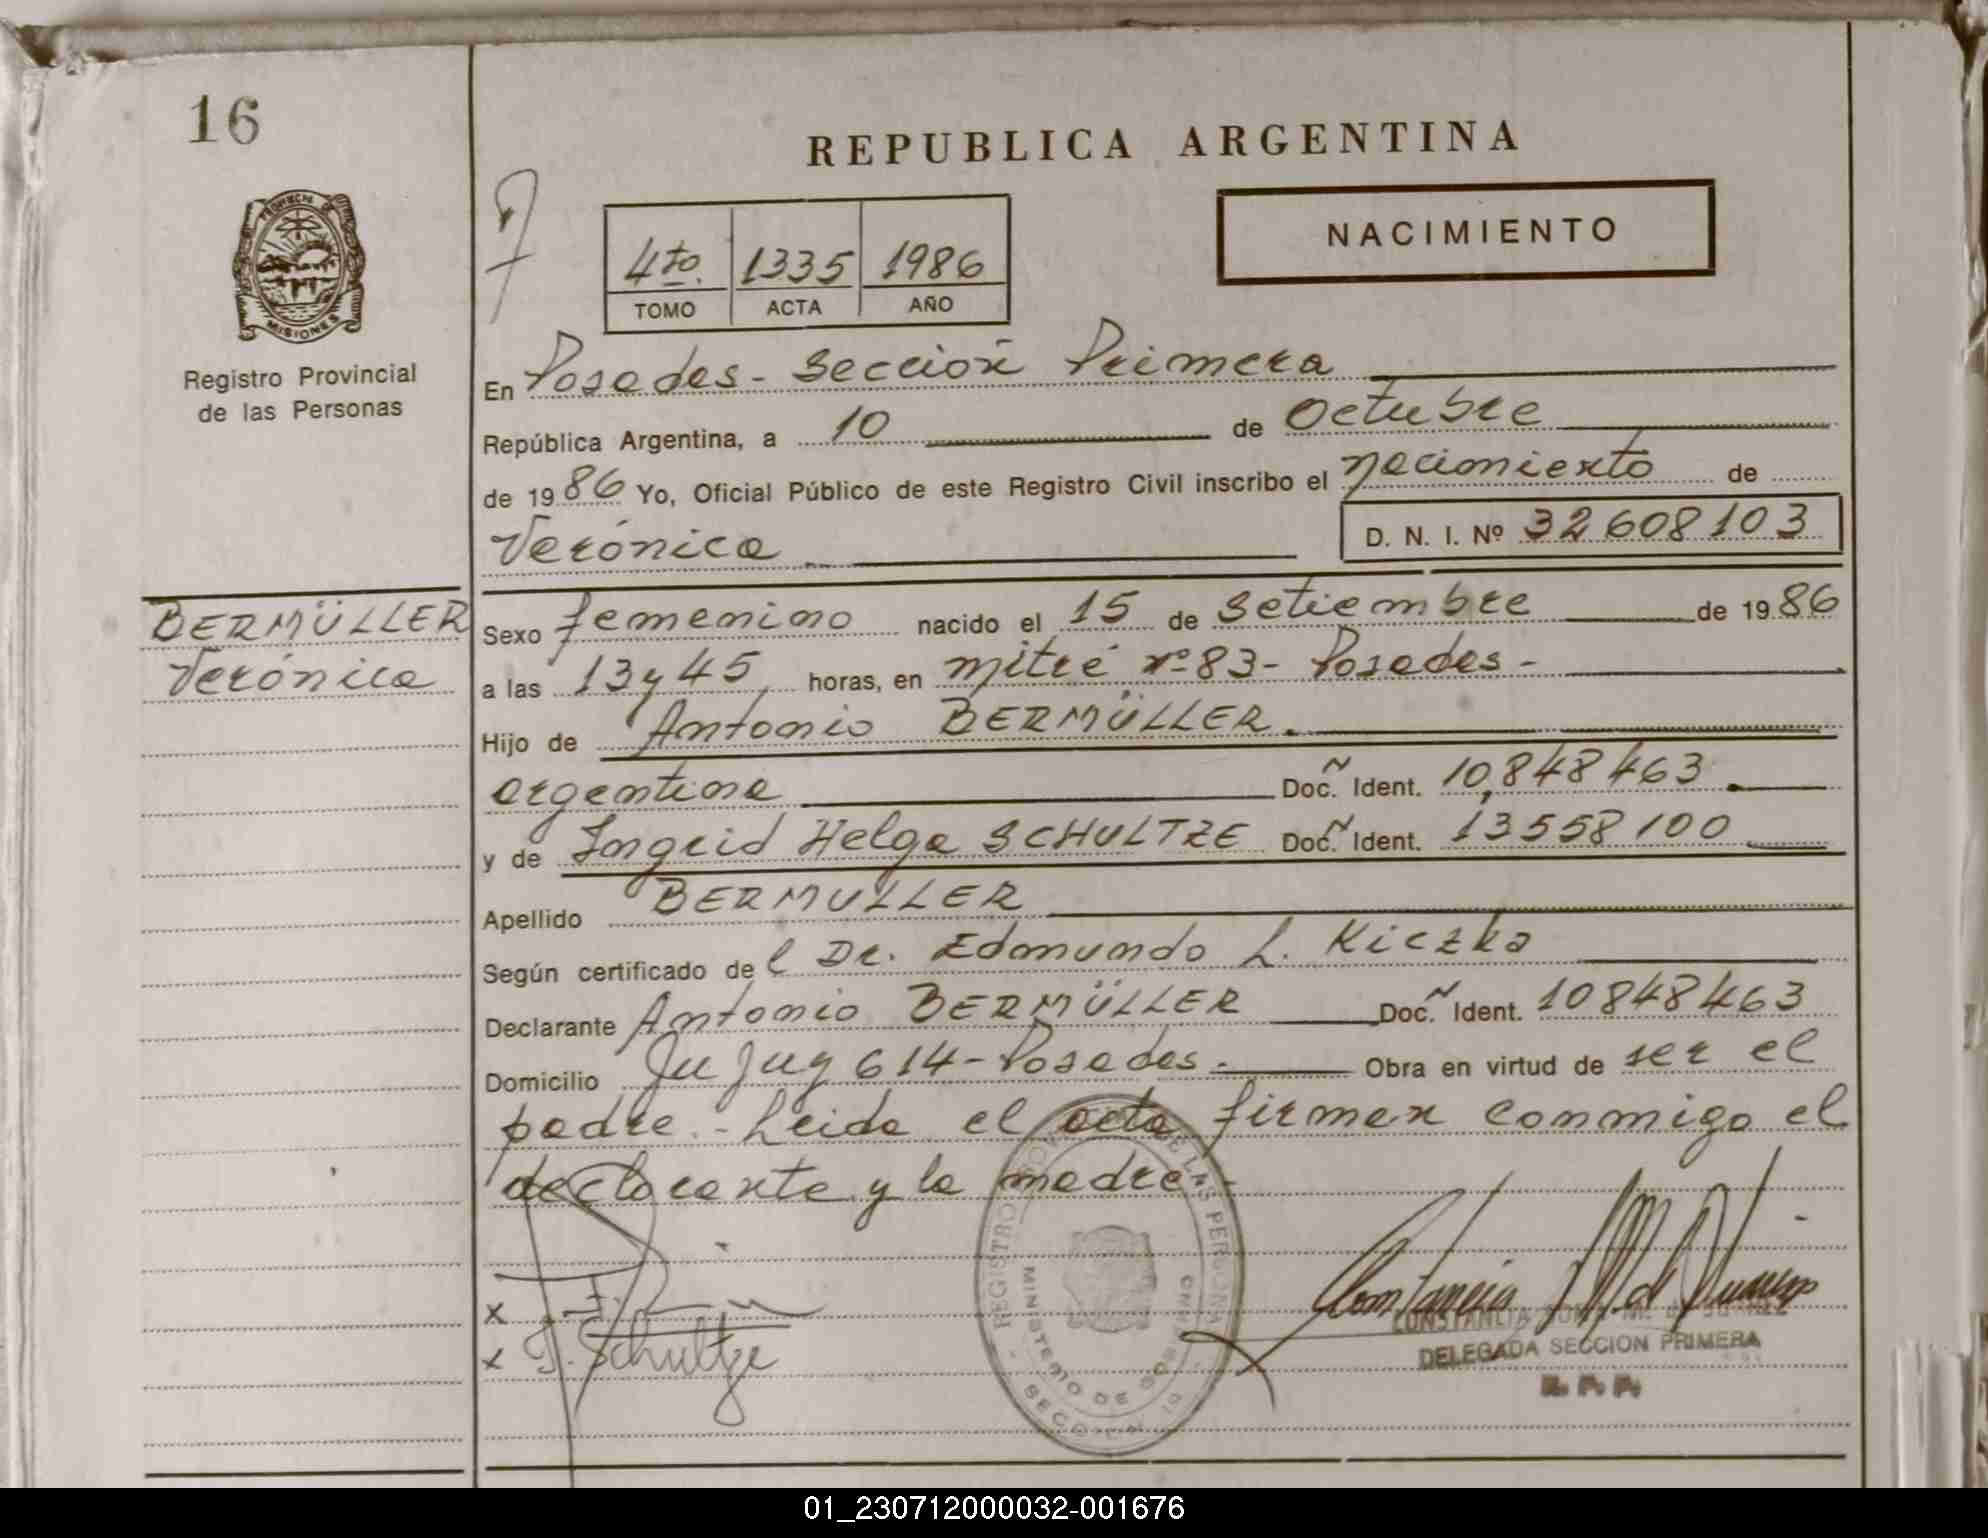 16
REPUBLICA ARGENTINA
NACIMIENTO
4to. 1335 1986
TOMO ACTA AÑO
PROVINCIA DE
MISIONES
Registro Provincial
de las Personas
En Posadas - Sección Primera
República Argentina, a 10 de Octubre
de 1986 Yo, Oficial Público de este Registro Civil inscribo el nacimiento de
Verónica
D. N. I. Nº 32608103
BERMÜLLER
Verónica
Sexo femenino nacido el 15 de Setiembre de 1986
a las 13 y 45 horas, en mitre nº 83 - Posadas -
Hijo de Antonio BERMÜLLER.
argentina Doc. Ident. 10,848463
y de Ingrid Helga SCHULTZE Doc. Ident. 13558100
Apellido BERMULLER
Según certificado del Dr. Edmundo L. Kiczka
Declarante Antonio BERMÜLLER Doc. Ident. 10848463
Domicilio Jujuy 614 - Posadas. Obra en virtud de ser el
padre. - Leida el acta firman conmigo el
declarante y la madre. -
x
x I. Schultze
REGISTRO DE LAS PERSONAS
MINISTERIO DE GOBIERNO
Constancia
CONSTANCIA
DELEGADA SECCION PRIMERA
R. P. P.
01_230712000032-001676